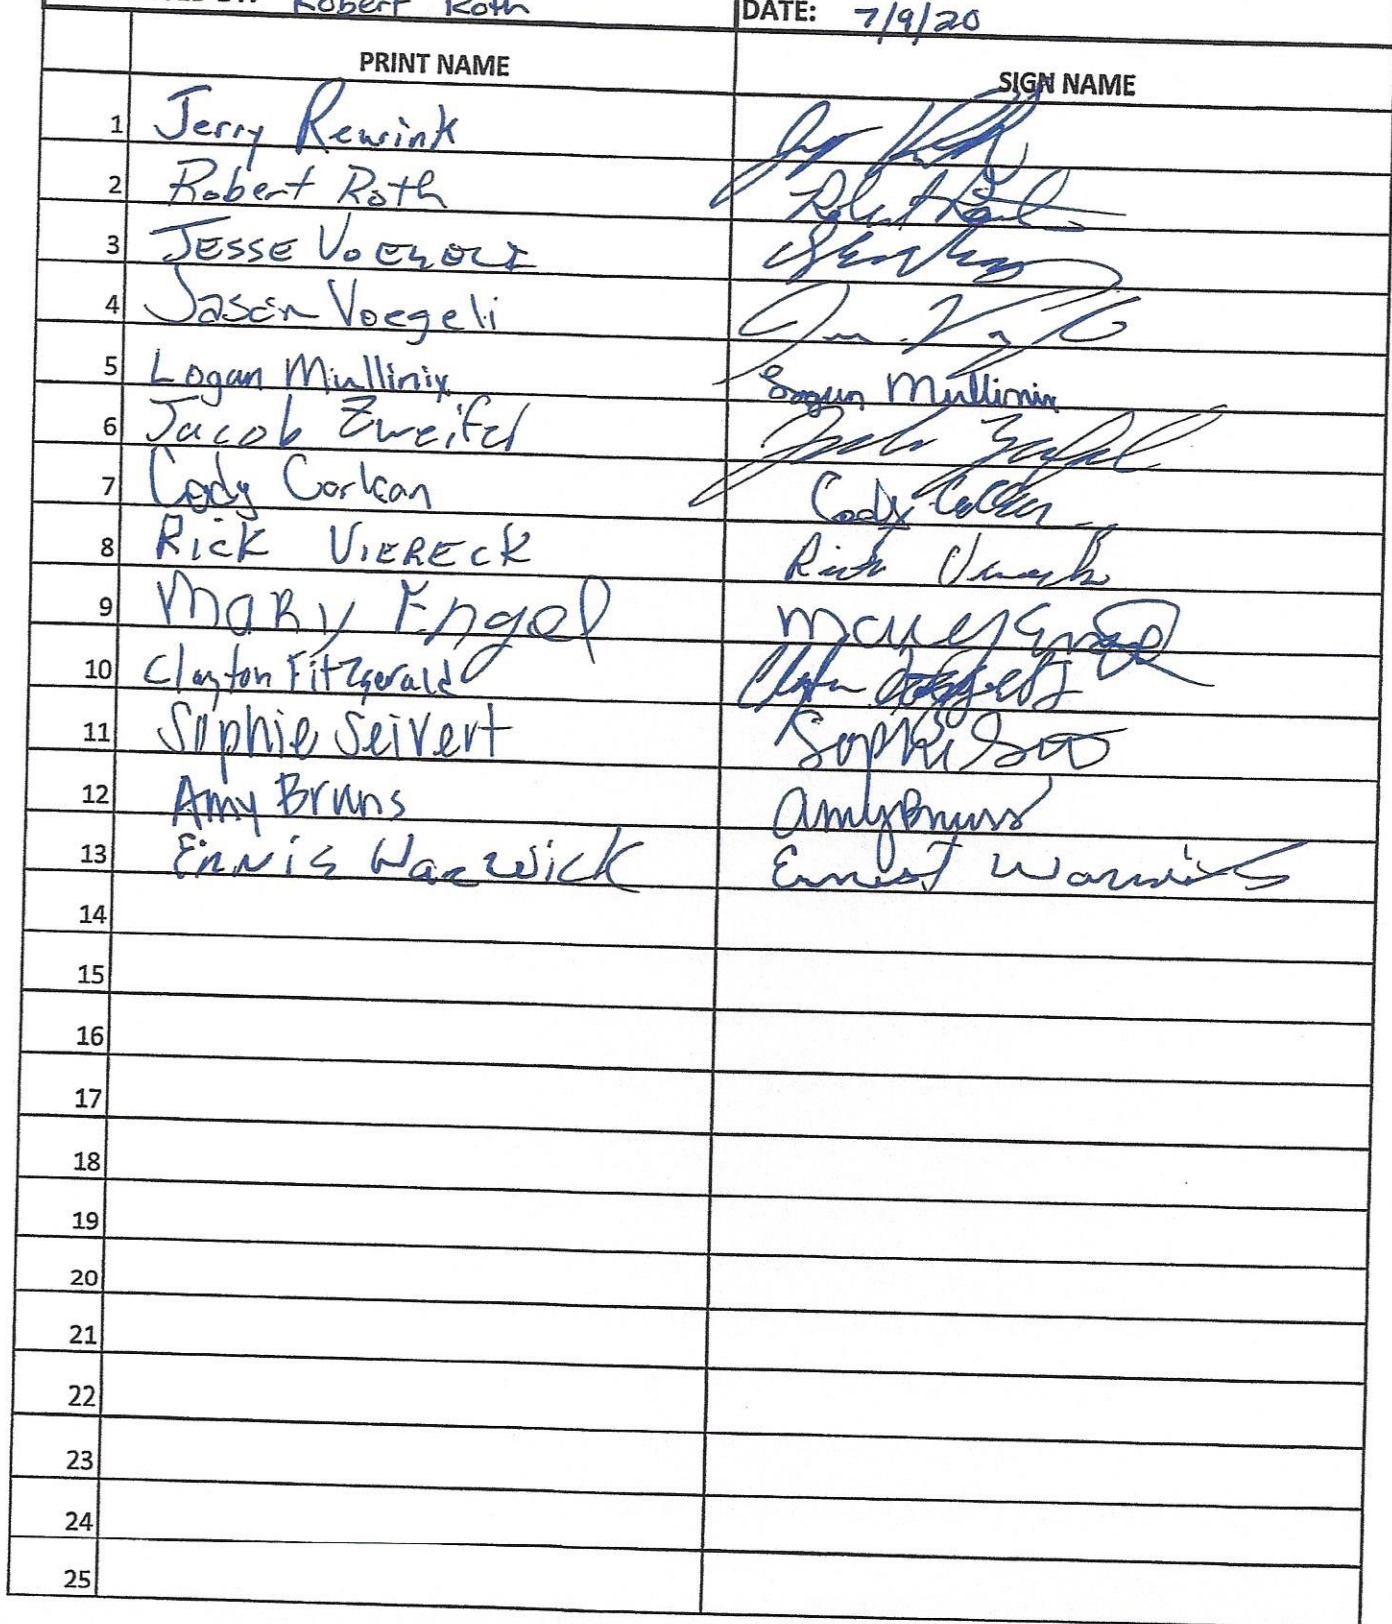 Robert Roth DATE: 7/9/20
PRINT NAME SIGN NAME
1 Jerry Rewink
2 Robert Roth Robert Roth
3 JESSE VOEGELI
4 Jason Voegeli
5 Logan Mullinix Logan Mullinix
6 Jacob Zweifel
7 Cody Corkan Cody
8 Rick VIERECK Rick
9 MaRy Engel Mary Engel
10 Clayton FitZgerald
11 Sophie Seivert
12 Amy Bruns Amy Bruns
13 Ennis Warwick Ernest Warwick
14
15
16
17
18
19
20
21
22
23
24
25